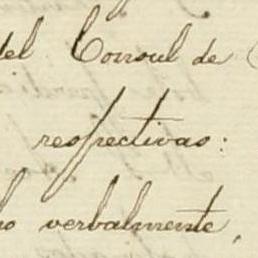 del Consul de
respectivas:
verbalmente,